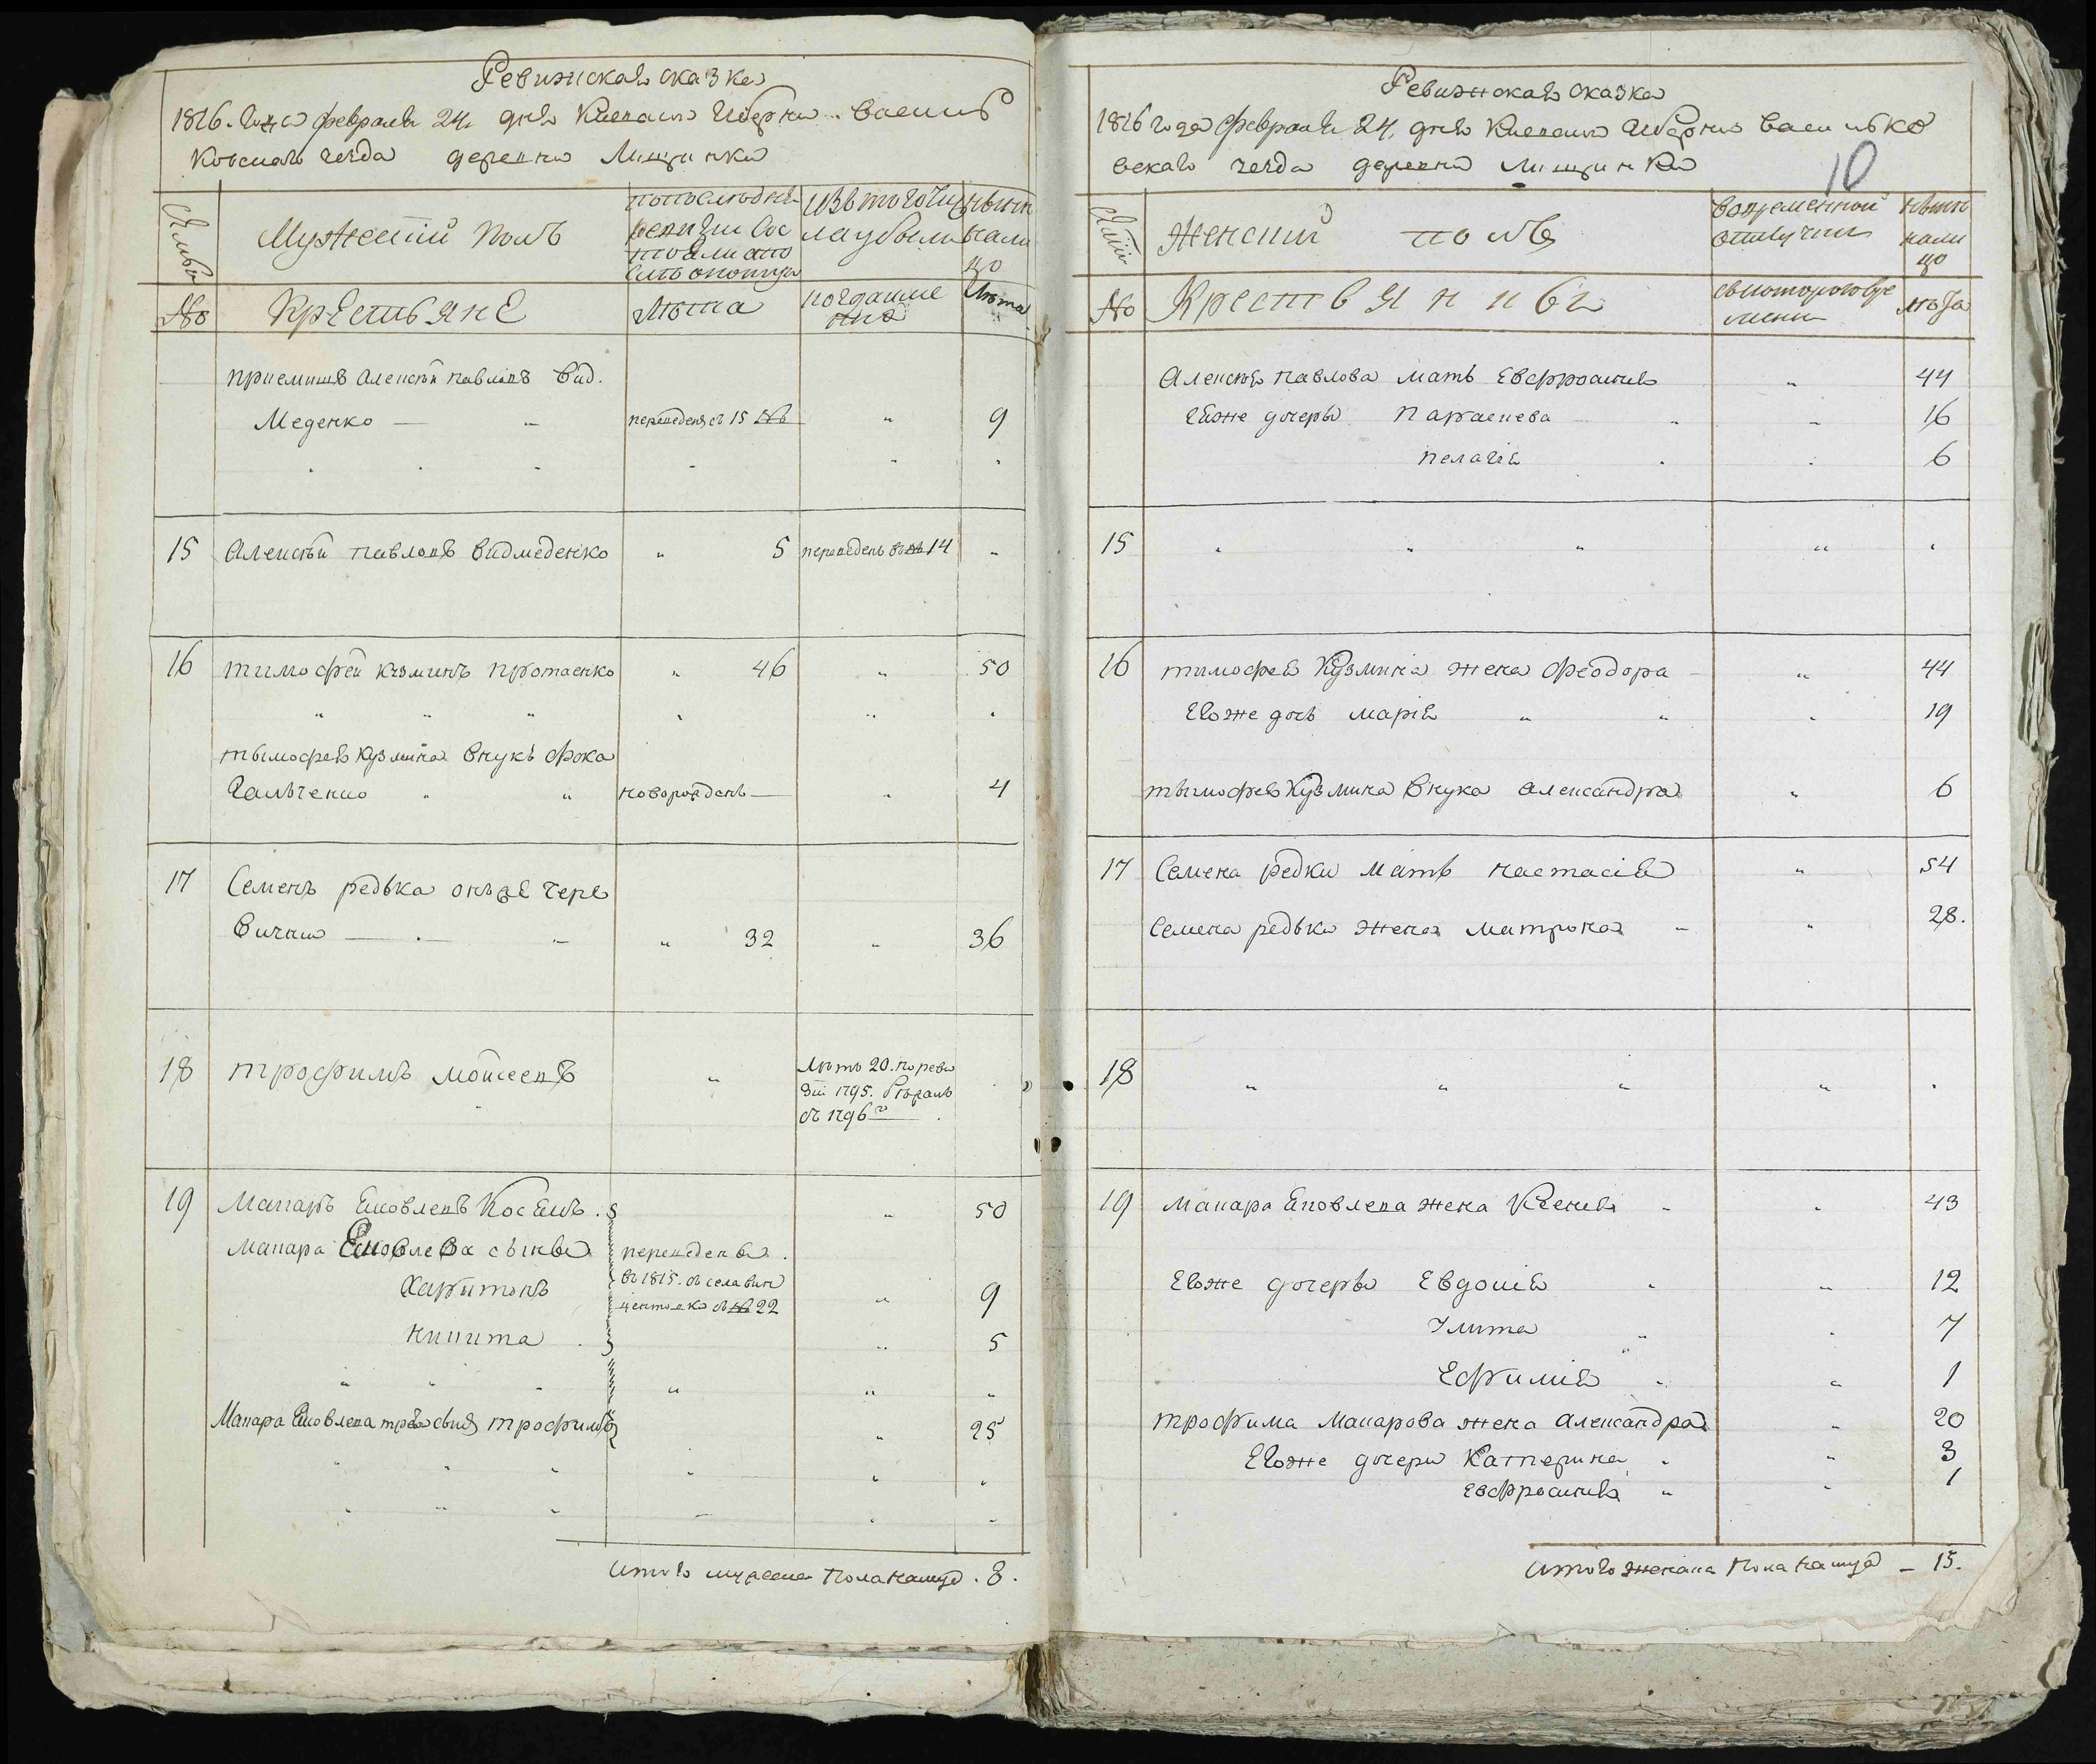 Ревизская сказка
1816. года февраля 24 дня Киевской Губернии Василь
ковскаго уезда деревни Мищинки
Семьи
Мужеский полъ
по последней
ревизии сос
тояло и по
изъ того чис
ла убыло
ныне
нали
цо
№
Крестьяне
Лета
когда и
Лета
приемышъ Алексей павловъ Вид.
Меденко — " переведенъ съ 15 № " 9
15 Алексей павловъ Видмеденко " 5 переведенъ въ № 14 "
16 тимофей кузминъ протаенко " 46 " 50
тымофея кузмина внукъ фока
Гальченко " " новорожденъ — " 4
17 Семенъ редька онъ же чере
вички — " " 32 " 36
18 трофимъ мойсеевъ "
Летъ 20. по реви
зіи 1795.
съ 1796го
19 Макаръ Яковлевъ " 50
Макара Яковлева сыны переведены
Харитонъ въ 1815. съ села Вин
ницкого съ № 22 " 9
никита " 5
Макара Яковлева третій сынъ трофимъ " 25
Итого мужеска Пола налицо . 8 .
Ревизская сказка
1816 года февраля 24, дня Киевской Губернии Василько
вскаго уезда деревни Мищинки
10
Семьи
Женский полъ
во временной
отлучке
ныне
нали
цо
№
Крестьянки
съ котораго вре
мени
лета
Алексея павлова мать Евфросинія " 44
Егоже дочери Параскева " 16
пелагія " 6
15 " " " " "
16 тимофея Кузмина жена феодора " 44
Егоже дочь марія " " 19
тымофея Кузмина внука александра " 6
17 Семена редки мать настасія " 54
Семена редьки жена матрона " 28.
18 " " " " "
19 макара Яковлева жена Ксенія " 43
Егоже дочеры Евдокія " 12
Улита " 7
Ефимія " 1
трофима макарова жена александра " 20
Егоже дочери Катерина " 3
Евфросинія " 1
Итого женска Пола налицо — 15.